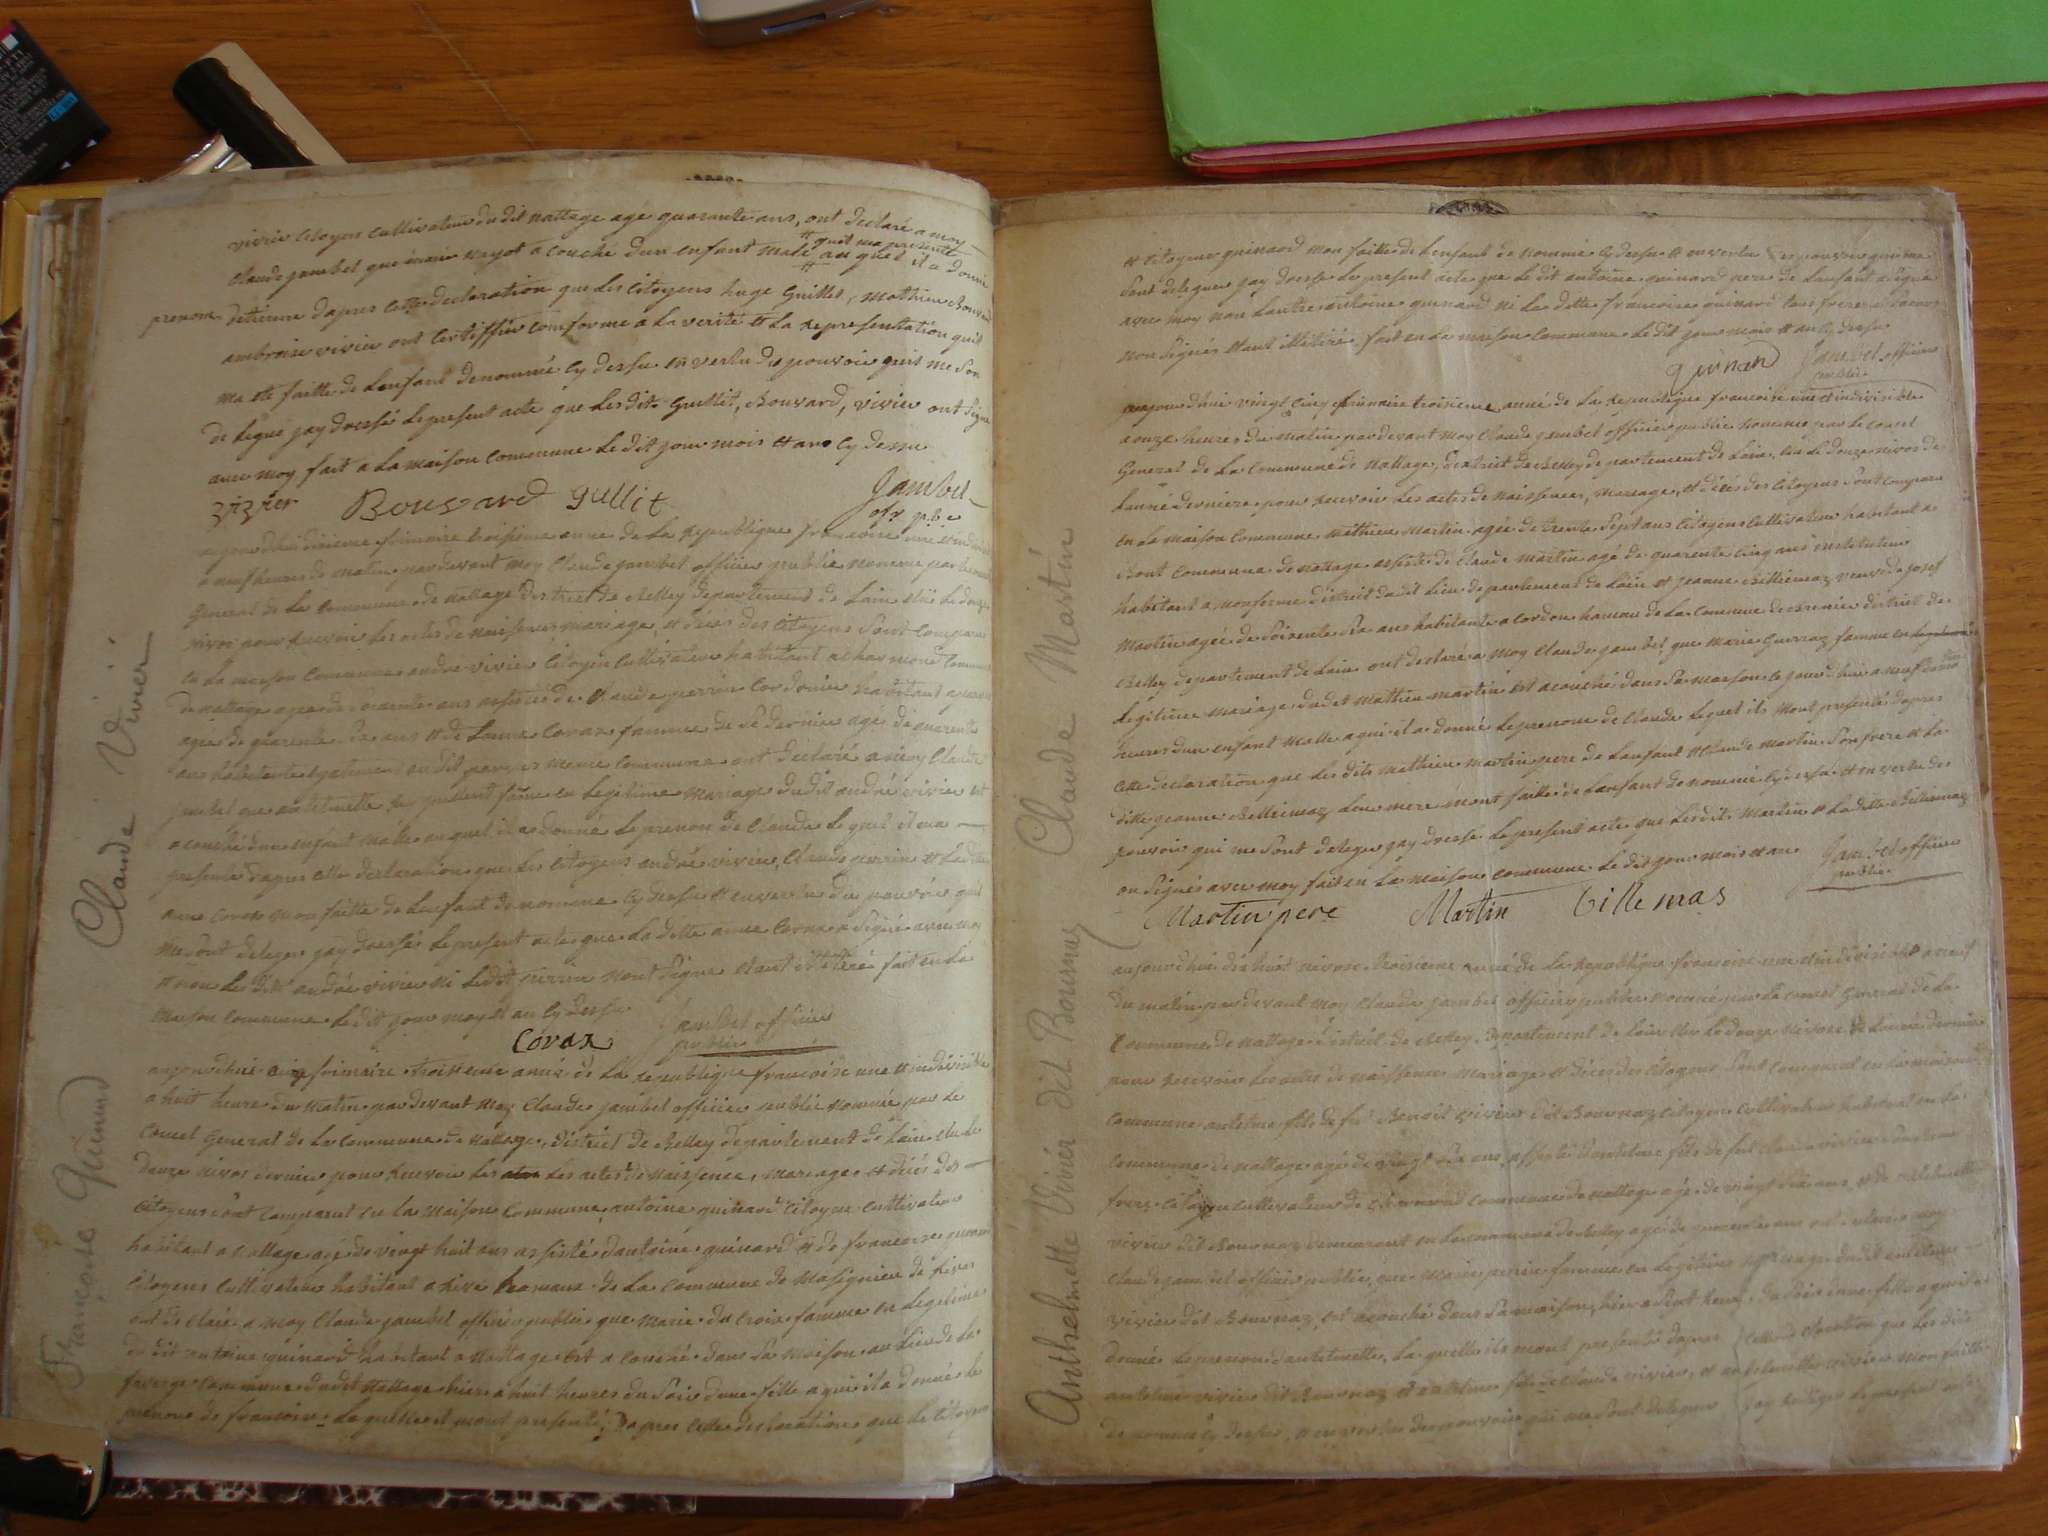 vivier citoyen cultivateur du dit nattage age quarante ans, ont declaré a moy
Claude jambet que marie rayot a couché dun enfant male auquel il a donné
prenom detienne dapres cette declaration que les citoyens huge Guillit, mathieu Bouvard
ambroise vivier ont certiffier comforme a la verité et la representation quil
ma eté faitte de lenfant denommé cy dessu en vertu du pouvoir quis me son
de legué jay dressé le present acte que les dits Guillit, Bouvard, vivier ont signe
avec moy fait a la maison commune le dit jour mois et ans cy dessu
vizier Bouvard gullit Jambet
off pbe
aujourdhui dixieme frimaire troisieme anne de la republique francoise une et indivisible
a neuf heures du matin pardevant moy Claude jambet officier publie nomme par le conset
General de la commune de nattage district de Belley departement de lain elue le douze
nivos pour recevoir les actes de naissences mariage et déces des citoyens sont comparus
en la maison commune andre vivier citoyen cultivateur habitant a charmond commune
de nattage age de soixante ans assisté de Claude perrin cordonier habitant a
agée de quarente six ans et de anne Corax femme de se dernier agé de quarente
ans habitante egalement au dit meme commune ont declaré a moy Claude
jambet que antelmette guy femme en legitime mariage du dit andré vivier est
acouché dun enfant malle auquel il a donné le prenom de Claude le quel il ma
presenté dapres cette declaration que les citoyens andré vivier, Claude perrin et la ditte
anne Corax mon faitte de lenfant denommé cy dessu et en vertu du pouvoir qui
me sont deleguer jay dressé le present acte que la ditte anne Corax a signé avec moy
et non le dit andré vivier ni le dit perrin nont signe etant illiteré fait en la
maison commune le dit jour moy et an cy dessu
Corax Jambet officier
publie
aujourdhui cinq frimaire troisieme année de la republique francoise une et indivisible
a huit heure du matin pardevant moy Claude jambet officier publie nommé par le
Conset General de la commune de nattage, district de Belley departement de lain elu le
douze nivos dernier pour recevoir les actes de naissence, mariage et déces des
citoyens sont comparut en la maison commune antoine quinard citoyen cultivateur
habitant a nattage agé de vingt huit ans assisté dantoine quinard et de francoise quinard
citoyens cultivateur habitant a rive hameaux de la commune de masignieu de rives
ont declaré a moy Claude jambet officier publie que marie du crois famme en legitime
du dit antoine quinard habitant a nattage est acouché dans sa maison au lieu de la
faverge commune du dit nattage hier a huit heures du soir dune fille a qui il a donné le
prenom de francoise la quelle il mont presenté, dapres cette declaration que le citoyen
Claude Vivier
Françoise Quinard
et citoyenne quinard mon faitte de lenfant de nommé cy dessu et en vertu des pouvoir qui me
sont deleguer jay dressé le present acte que le dit antoine quinard pere de lenfant a signe
avec moy non lautre antoine quinard ni la ditte francoise quinard tous frere et soeurs
non signés etant illitéré fait en la maison commune le dit jour mois et an cy dessu
Quinard Jambet officier
publie
aujourdhui vingt cinq frimaire troisieme anné de la republique francoise une et indivisible
a onze heures du matin pardevant moy Claude jambet officier publie nommé par le conset
General de la commune de nattage, district de Belley departement de lain, elu le douze nivos de
lanné derniere pour recevoir les actes de naissences, mariage, et déces des citoyens sont comparu
en la maison commune mathieu martin agée de trente sept ans citoyens cultivateur habitant a
Bont commune de nattage assisté de Claude martin agé de quarente cinq ans instituteur
habitant a district du dit lieu departement de lain et jeanne Billiemaz veuve de josef
martin agée de soixente six ans habitante a cordon hameau de la comune de Brenier district de
Belley departement de lain ont declaré a moy Claude jambet que Marie Guerraz famme en
legitime mariage du dit mathieu martin est acouché dans sa maison ce jourdhui a neuf
heures dun enfant malle a qui il a donné le prenom de Claude lequel ils mont presenté dapres
cette declaration que les dits mathieu martin pere de lenfant et Claude martin son frere et la
ditte jeanne Billiemaz leur mere mont faitte de lanfant de nommé cy dessu et en vertu des
pouvoir qui me sont deleguer jay dressé le present acte que les dits martin et la ditte Billiemaz
on signés avec moy fait en la maison commune le dit jour mois et an
Jambet officier
publie
Martin pere Martin billemas
aujourdhui dix huit nivose troisieme année de la republique francoise une et indivisible a neuf
du matin pardevant moy Claude jambet officier publie nommé par le conset General de la
Commune de nattage district de Belley departement de lain elu le douze nivose de lanné derniere
pour recevoir les actes de naissences mariage et déces des citoyens sont comparut en la maison
commune antelme fils de feu Benoit vivier dit Bournaz citoyen cultivateur habitant en la
commune de nattage agé de vingt six ans assisté dantelme fils de feu Claude vivier son
frere citoyen cultivateur de charmond commune de nattage agé de vingt six ans, et de antelmette
vivier dit Bournaz demeurant en la commune de Belley agé de quarente ans ont declaré a moy
Claude jambet officier publie, que marie perrin famme en legitime mariage du dit antelme
vivier dit Bournaz, est acouché dans sa maison, hier a sept heure du soir dune fille a qui il a
donné le prenom dantelmette, la quelle ils mont presenté dapres cette declaration que les dit
antelme vivier dit Bournaz et antelme fils de Claude vivier, et antelmette vivier mon faitte
de nommé cy dessu, et en vertu des pouvoir qui me sont deleguer jay rediger le present acte
Claude Martin
Anthelmette Vivier dit Bournaz